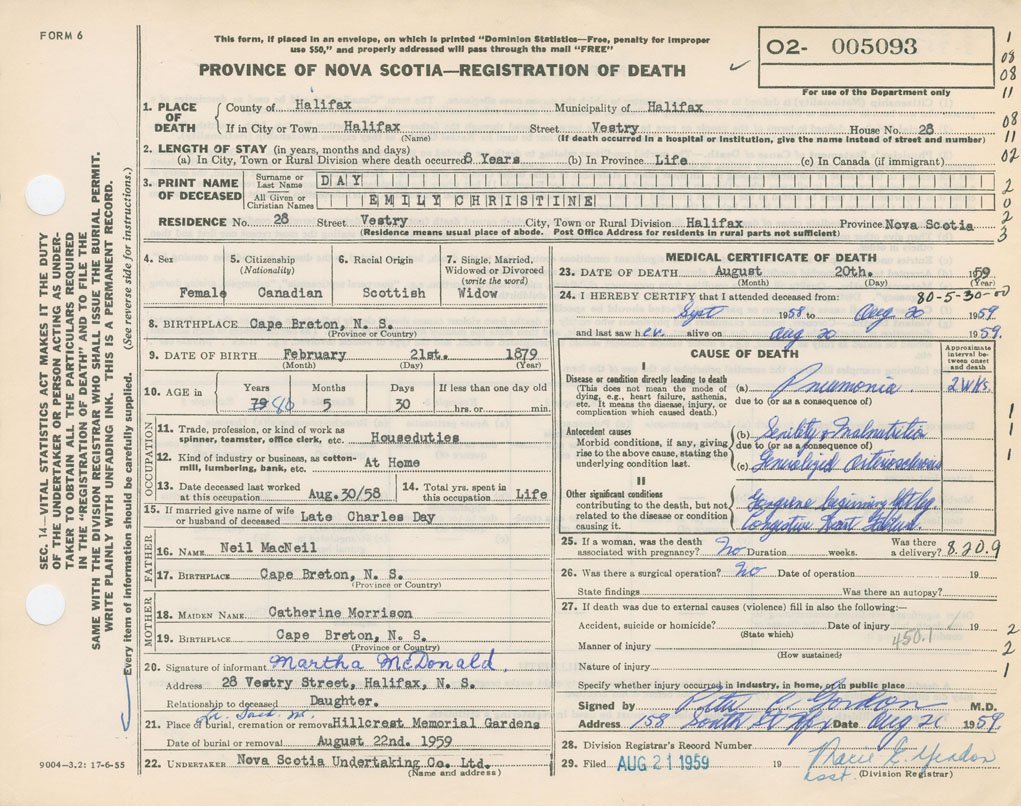 FORM 6
This form, if placed in an envelope, on which is printed "Dominion Statistics—Free, penalty for improper
use $50," and properly addressed will pass through the mail "FREE"
PROVINCE OF NOVA SCOTIA—REGISTRATION OF DEATH
02- 005093
For use of the Department only
1
08
08
11
08
11
02
2
0
2
3
1. PLACE OF DEATH
County of Halifax Municipality of Halifax
If in City or Town Halifax Street Vestry House No. 28
(Name) (If death occurred in a hospital or institution, give the name instead of street and number)
2. LENGTH OF STAY (in years, months and days)
(a) In City, Town or Rural Division where death occurred 8 Years (b) In Province Life (c) In Canada (if immigrant)
3. PRINT NAME OF DECEASED
Surname or Last Name DAY
All Given or Christian Names EMILY CHRISTINE
RESIDENCE No. 28 Street Vestry City, Town or Rural Division Halifax Province Nova Scotia
(Residence means usual place of abode. Post Office Address for residents in rural parts not sufficient)
SEC. 14—VITAL STATISTICS ACT MAKES IT THE DUTY
OF THE UNDERTAKER OR PERSON ACTING AS UNDER-
TAKER TO OBTAIN ALL THE PARTICULARS REQUIRED
IN THE "REGISTRATION OF DEATH" AND TO FILE THE
SAME WITH THE DIVISION REGISTRAR WHO SHALL ISSUE THE BURIAL PERMIT.
WRITE PLAINLY WITH UNFADING INK. THIS IS A PERMANENT RECORD.
Every item of information should be carefully supplied. (See reverse side for instructions.)
4. Sex
Female
5. Citizenship
(Nationality)
Canadian
6. Racial Origin
Scottish
7. Single, Married,
Widowed or Divorced
(write the word)
Widow
8. BIRTHPLACE Cape Breton, N. S.
(Province or Country)
9. DATE OF BIRTH February 21st. 1879
(Month) (Day) (Year)
10. AGE in
Years Months Days If less than one day old
79 80 5 30 hrs. or min.
OCCUPATION
11. Trade, profession, or kind of work as
spinner, teamster, office clerk, etc. Houseduties
12. Kind of industry or business, as cotton-
mill, lumbering, bank, etc. At Home
13. Date deceased last worked
at this occupation Aug.30/58
14. Total yrs. spent in
this occupation Life
15. If married give name of wife
or husband of deceased Late Charles Day
FATHER
16. NAME Neil MacNeil
17. BIRTHPLACE Cape Breton, N. S.
(Province or Country)
MOTHER
18. MAIDEN NAME Catherine Morrison
19. BIRTHPLACE Cape Breton, N. S.
(Province or Country)
20. Signature of informant Martha McDonald.
Address 28 Vestry Street, Halifax, N. S.
Relationship to deceased Daughter.
21. Place of burial, cremation or removal Hillcrest Memorial Gardens
Date of burial or removal August 22nd. 1959
22. UNDERTAKER Nova Scotia Undertaking Co. Ltd.
(Name and address)
9004—3.2: 17-6-55
MEDICAL CERTIFICATE OF DEATH
23. DATE OF DEATH August 20th. 1959
(Month) (Day) (Year)
80-5-30-00
24. I HEREBY CERTIFY that I attended deceased from:
Sept 1958 to Aug 20 1959.
and last saw her alive on Aug 20 1959.
CAUSE OF DEATH
Approximate
interval be-
tween onset
and death
I
Disease or condition directly leading to death
(This does not mean the mode of
dying, e.g., heart failure, asthenia,
etc. It means the disease, injury, or
complication which caused death.)
(a) Pneumonia 2 wks.
due to (or as a consequence of)
Antecedent causes
Morbid conditions, if any, giving
rise to the above cause, stating the
underlying condition last.
(b) Senility & Malnutrition
due to (or as a consequence of)
(c) Generalized Arteriosclerosis
II
Other significant conditions
contributing to the death, but not
related to the disease or condition
causing it.
Gangrene beginning left leg
Congestive Heart Failure
1
1
1
25. If a woman, was the death
associated with pregnancy? No Duration weeks. Was there
a delivery? 8.20.9
26. Was there a surgical operation? No Date of operation 19
State findings Was there an autopsy?
27. If death was due to external causes (violence) fill in also the following:—
Accident, suicide or homicide? Date of injury 19
(State which)
450.1
Manner of injury
(How sustained)
Nature of injury
2
2
1
Specify whether injury occurred in industry, in home, in public place
Signed by Gordon M.D.
Address 158 South St Hfx Date Aug 21 1959.
28. Division Registrar's Record Number
29. Filed AUG 21 1959 19
Asst. (Division Registrar)